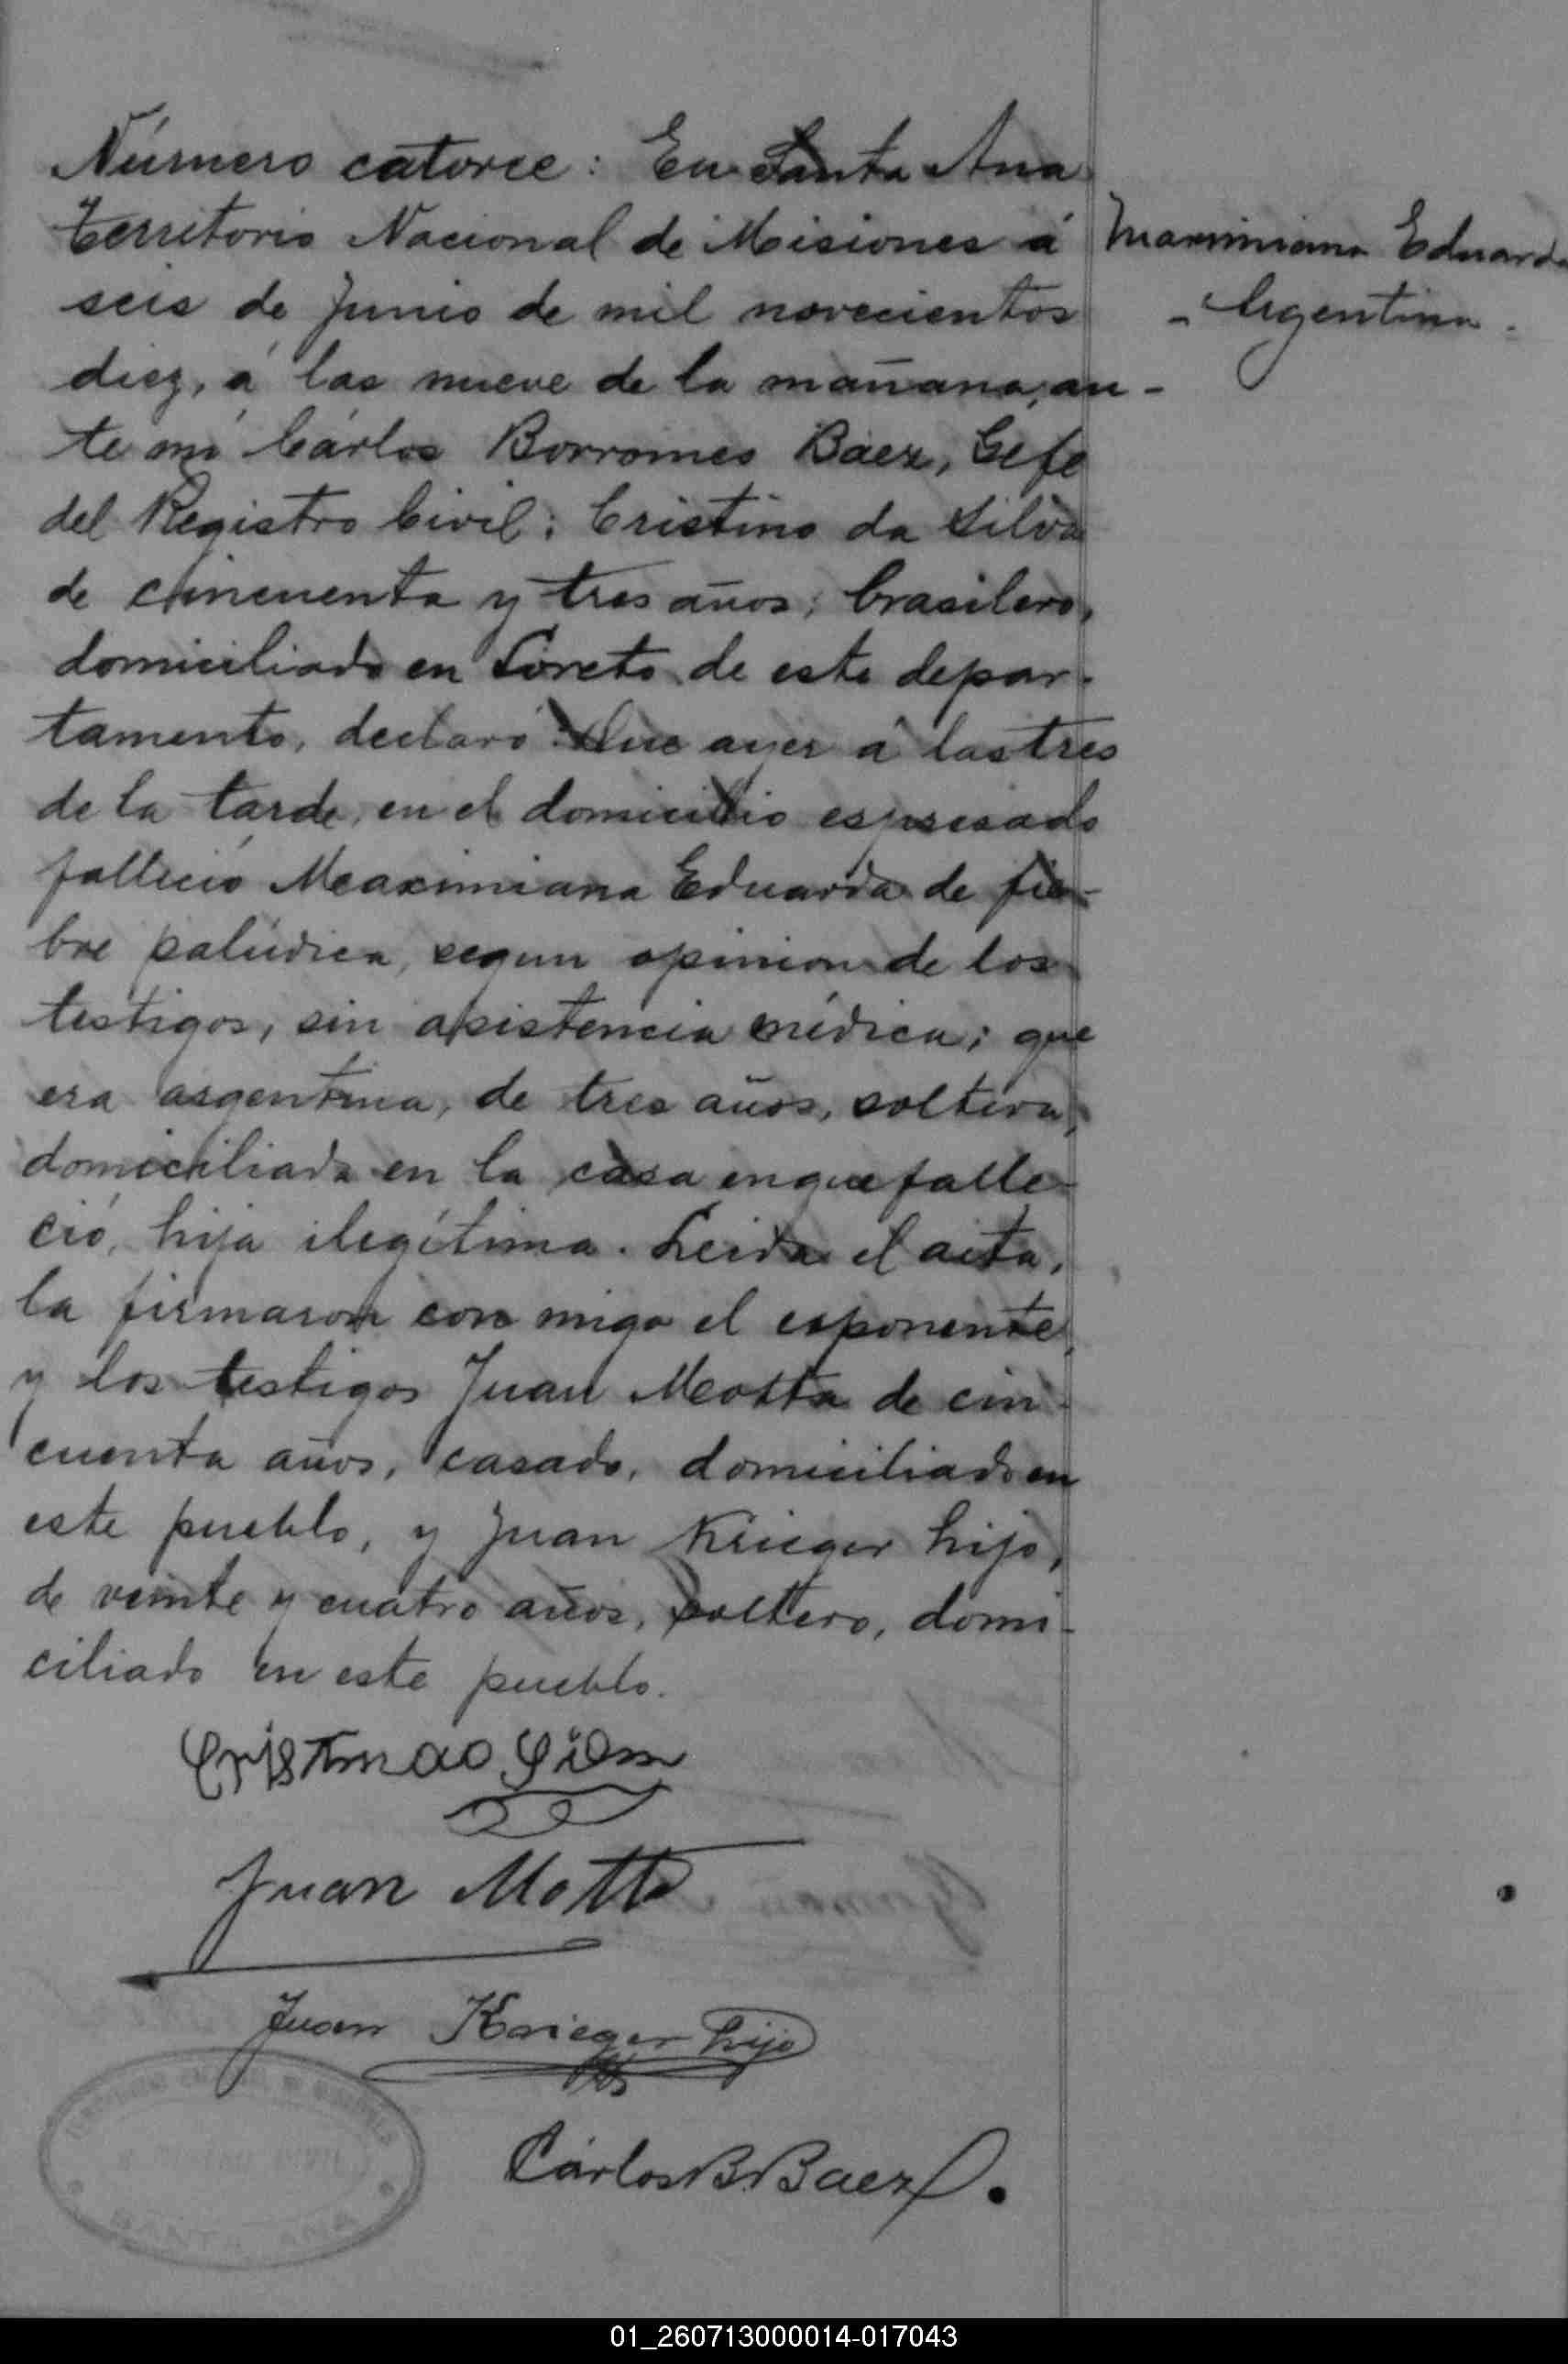 Número catorce: En Santa Ana
Territorio Nacional de Misiones á
seis de Junio de mil novecientos
diez, á las nueve de la mañana, an-
te mi Cárlos Borromeo Baez, Gefe
del Registro Civil: Cristino da Silva
de cincuenta y tres años, brasilero,
domiciliado en Loreto de este depar-
tamento, declaró: Que ayer á las tres
de la tarde, en el domicilio espresado
falleció Maximiana Eduarda de fie-
bre palúdica, segun opinion de los
testigos, sin asistencia médica; que
era argentina, de tres años, soltera,
domiciliada en la casa en que falle-
ció, hija ilegítima. Leida el acta,
la firmaron con migo el esponente,
y los testigos Juan Motta de cin-
cuenta años, casado, domiciliado en
este pueblo, y Juan Krieger hijo,
de veinte y cuatro años, soltero, domi-
ciliado en este pueblo.
Maximiana Eduarda
- Argentina.
Juan Motta
Juan Krieger hijo
Cárlos B. Baez
SANTA ANA
01_260713000014-017043